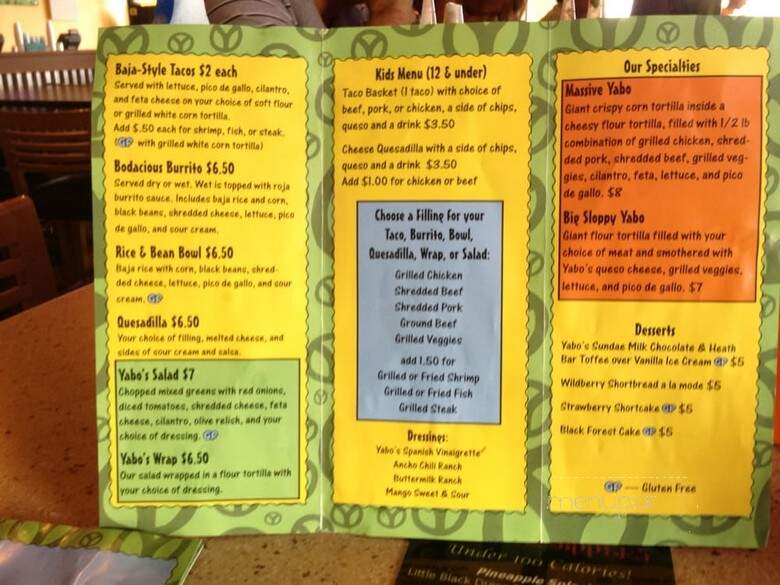 Baja-Style Tacos $2 each
Served with lettuce, pico de gallo, cilantro,
and feta cheese on your choice of soft flour
or grilled white corn tortilla.
Add $.50 each for shrimp, fish, or steak.
(GF with grilled white corn tortilla)
Bodacious Burrito $6.50
Served dry or wet. Wet is topped with roja
burrito sauce. Includes baja rice and corn,
black beans, shredded cheese, lettuce, pico
de gallo, and sour cream.
Rice & Bean Bowl $6.50
Baja rice with corn, black beans, shred-
ded cheese, lettuce, pico de gallo, and sour
cream. GF
Quesadilla $6.50
Your choice of filling, melted cheese, and
sides of sour cream and salsa.
Yabo's Salad $7
Chopped mixed greens with red onions,
diced tomatoes, shredded cheese, feta
cheese, cilantro, olive relish, and your
choice of dressing. GF
Yabo's Wrap $6.50
Our salad wrapped in a flour tortilla with
your choice of dressing.
Kids Menu (12 & under)
Taco Basket (1 taco) with choice of
beef, pork, or chicken, a side of chips,
queso and a drink $3.50
Cheese Quesadilla with a side of chips,
queso and a drink $3.50
Add $1.00 for chicken or beef
Choose a Filling for your
Taco, Burrito, Bowl,
Quesadilla, Wrap, or Salad:
Grilled Chicken
Shredded Beef
Shredded Pork
Ground Beef
Grilled Veggies
add 1.50 for
Grilled or Fried Shrimp
Grilled or Fried Fish
Grilled Steak
Dressings:
Yabo's Spanish Vinaigrette
Ancho Chili Ranch
Buttermilk Ranch
Mango Sweet & Sour
Our Specialties
Massive Yabo
Giant crispy corn tortilla inside a
cheesy flour tortilla, filled with 1/2 lb
combination of grilled chicken, shred-
ded pork, shredded beef, grilled veg-
gies, cilantro, feta, lettuce, and pico
de gallo. $8
Big Sloppy Yabo
Giant flour tortilla filled with your
choice of meat and smothered with
Yabo's queso cheese, grilled veggies,
lettuce, and pico de gallo. $7
Desserts
Yabo's Sundae Milk Chocolate & Heath
Bar Toffee over Vanilla Ice Cream GF $5
Wildberry Shortbread a la mode $5
Strawberry Shortcake GF $5
Black Forest Cake GF $5
GF — Gluten Free
Under 100 Calories!
Pineapple
Little Black